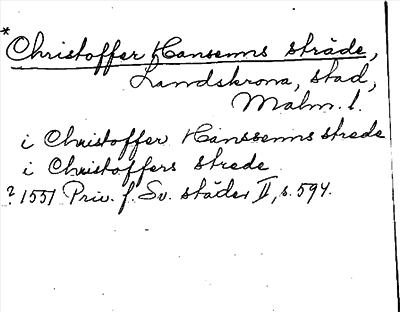 * Christoffer Hansenns stræde,
Landskrona, stad,
Malm. l.
i Christoffer Hanssenns strede
i Christoffers strede
? 1551 Priv. f. Sv. städer II, s. 594.